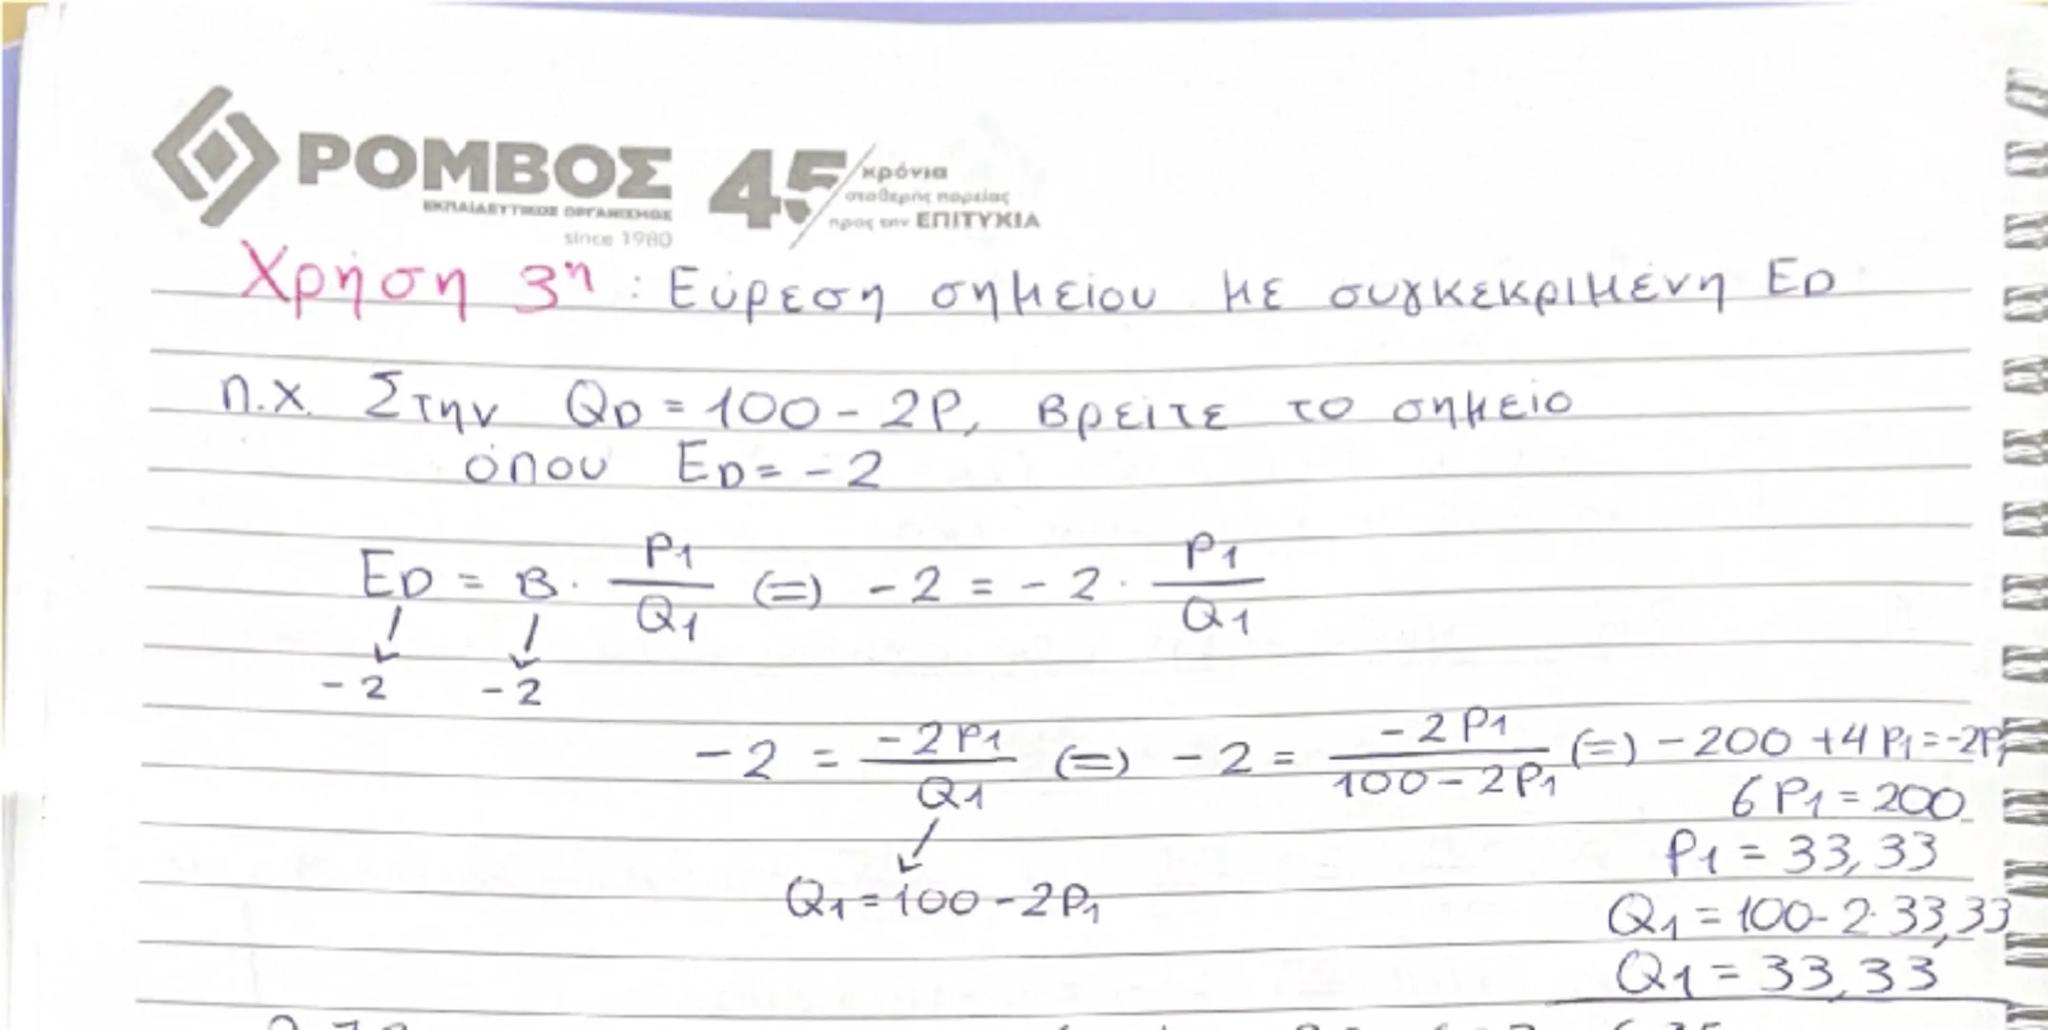 ΡΟΜΒΟΣ
ΕΚΠΑΙΔΕΥΤΙΚΟΣ ΟΡΓΑΝΙΣΜΟΣ
since 1980
45 χρόνια
σταθερής πορείας
προς την ΕΠΙΤΥΧΙΑ
Χρήση 3η : Εύρεση σημείου με συγκεκριμένη ED
π.χ. Στην QD = 100 - 2P, βρείτε το σημείο
όπου ED = -2
ED = B · P1/Q1 (=) -2 = -2 · P1/Q1
-2 -2
-2 = -2P1/Q1 (=) -2 = -2P1/100-2P1 (=) -200 + 4P1 = -2P1
6P1 = 200
P1 = 33,33
Q1 = 100 - 2P1
Q1 = 100 - 2 · 33,33
Q1 = 33,33